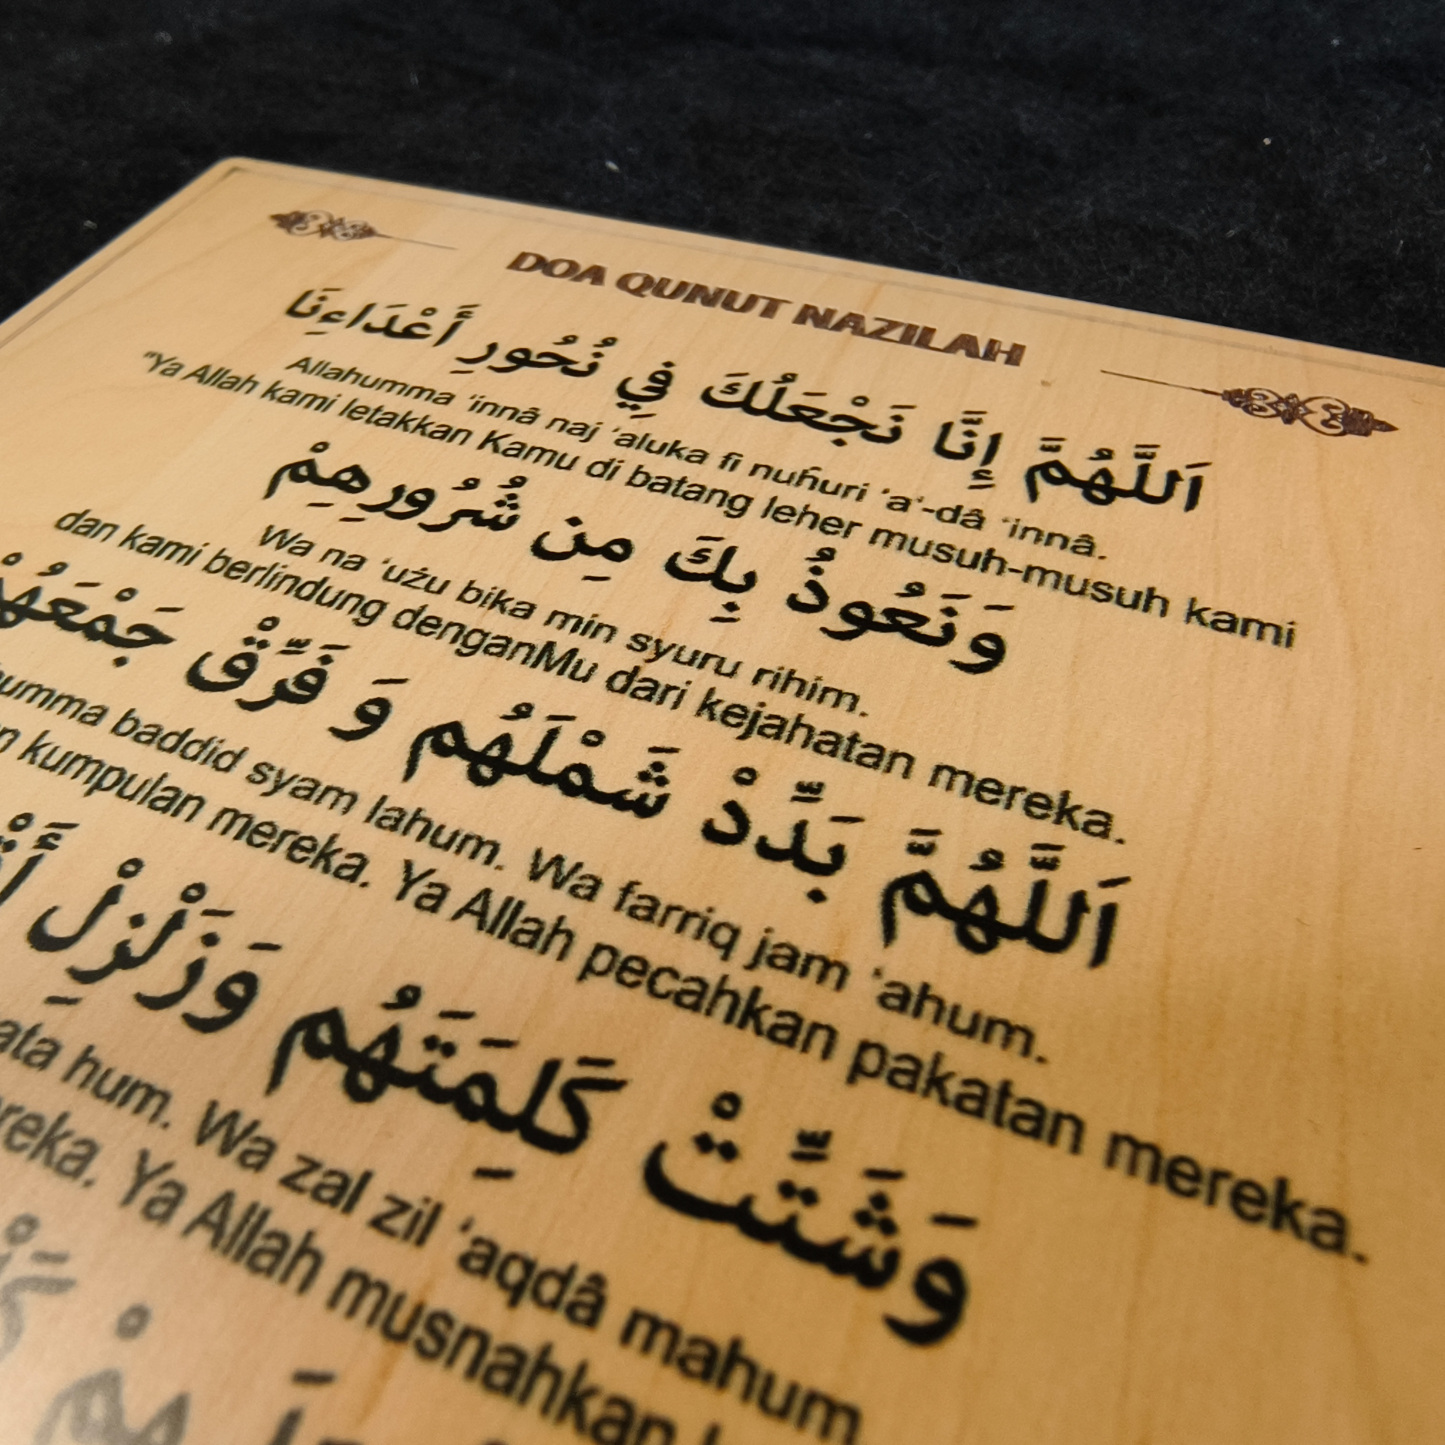 DOA QUNUT NAZILAH
اَللَّهُمَّ إِنَّا نَجْعَلُكَ فِي نُحُورِ أَعْدَاءِنَا
Allahumma ‘innâ naj ‘aluka fi nuɦuri ‘a‘-dâ ‘innâ.
"Ya Allah kami letakkan Kamu di batang leher musuh-musuh kami
وَنَعُوذُ بِكَ مِن شُرُورِهِمْ
Wa na ‘użu bika min syuru rihim.
dan kami berlindung denganMu dari kejahatan mereka.
اَللَّهُمَّ بَدِّدْ شَمْلَهُم وَ فَرِّقْ جَمْعَهُمْ
baddid syam lahum. Wa farriq jam ‘ahum.
kumpulan mereka. Ya Allah pecahkan pakatan mereka.
وَشَتِّتْ كَلِمَتَهُم وَزَلْزِلْ
hum. Wa zal zil ‘aqdâ mahum
Ya Allah musnahkan